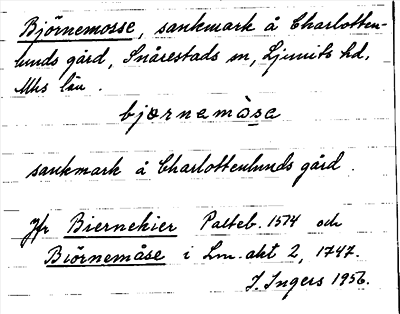 Björnemosse, sankmark å Charlotten-
lunds gård, Snårestads sn, Ljunits hd,
Mhs län.
bjœrnemɑ̀sɛ
sankmark å Charlottenlunds gård.
Jfr Biernekier Palteb. 1514 och
Biörnemåse i Lm. akt 2, 1747.
I. Ingers 1956.